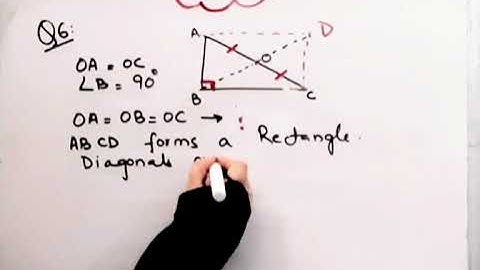 Q6:
A
D
O
B
C
OA = OC
∠B = 90°
OA = OB = OC → !
ABCD forms a Rectangle.
Diagonals